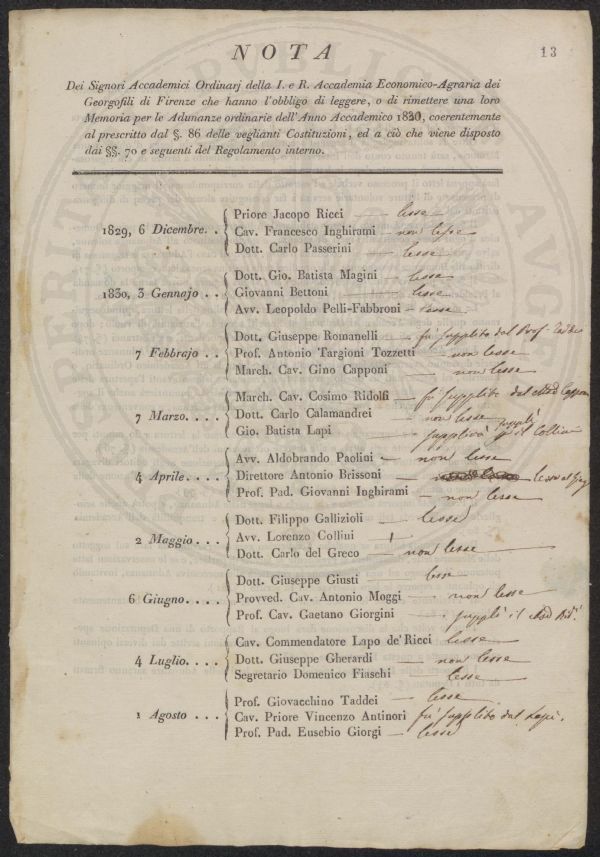 NOTA
13
Dei Signori Accademici Ordinarj della I. e R. Accademia Economico-Agraria dei
Georgofili di Firenze che hanno l'obbligo di leggere, o di rimettere una loro
Memoria per le Adunanze ordinarie dell'Anno Accademico 1830, coerentemente
al prescritto dal §. 86 delle veglianti Costituzioni, ed a ciò che viene disposto
dai §§. 70 e seguenti del Regolamento interno.
Priore Jacopo Ricci — lesse
1829, 6 Dicembre. . Cav. Francesco Inghirami — non lesse
Dott. Carlo Passerini — lesse
Dott. Gio. Batista Magini — lesse
1830, 3 Gennajo . . Giovanni Bettoni — lesse
Avv. Leopoldo Pelli-Fabbroni — lesse
Dott. Giuseppe Romanelli — fu supplito dal Prof. Taddei
7 Febbrajo . . Prof. Antonio Targioni Tozzetti — non lesse
March. Cav. Gino Capponi — non lesse
March. Cav. Cosimo Ridolfi — fu supplito dal Capponi
7 Marzo. . . . Dott. Carlo Calamandrei — non lesse
Gio. Batista Lapi — supplì il Collini
Avv. Aldobrando Paolini — non lesse
4 Aprile. . . . Direttore Antonio Brissoni — lesse
Prof. Pad. Giovanni Inghirami — non lesse
Dott. Filippo Gallizioli — lesse
2 Maggio. . . Avv. Lorenzo Collini —
Dott. Carlo del Greco — non lesse
Dott. Giuseppe Giusti — lesse
6 Giugno. . . . Provved. Cav. Antonio Moggi — non lesse
Prof. Cav. Gaetano Giorgini — supplì il
Cav. Commendatore Lapo de' Ricci lesse
4 Luglio. . . . Dott. Giuseppe Gherardi — non lesse
Segretario Domenico Fiaschi — lesse
Prof. Giovacchino Taddei — lesse
1 Agosto . . . Cav. Priore Vincenzo Antinori fu supplito dal Lapi.
Prof. Pad. Eusebio Giorgi — lesse